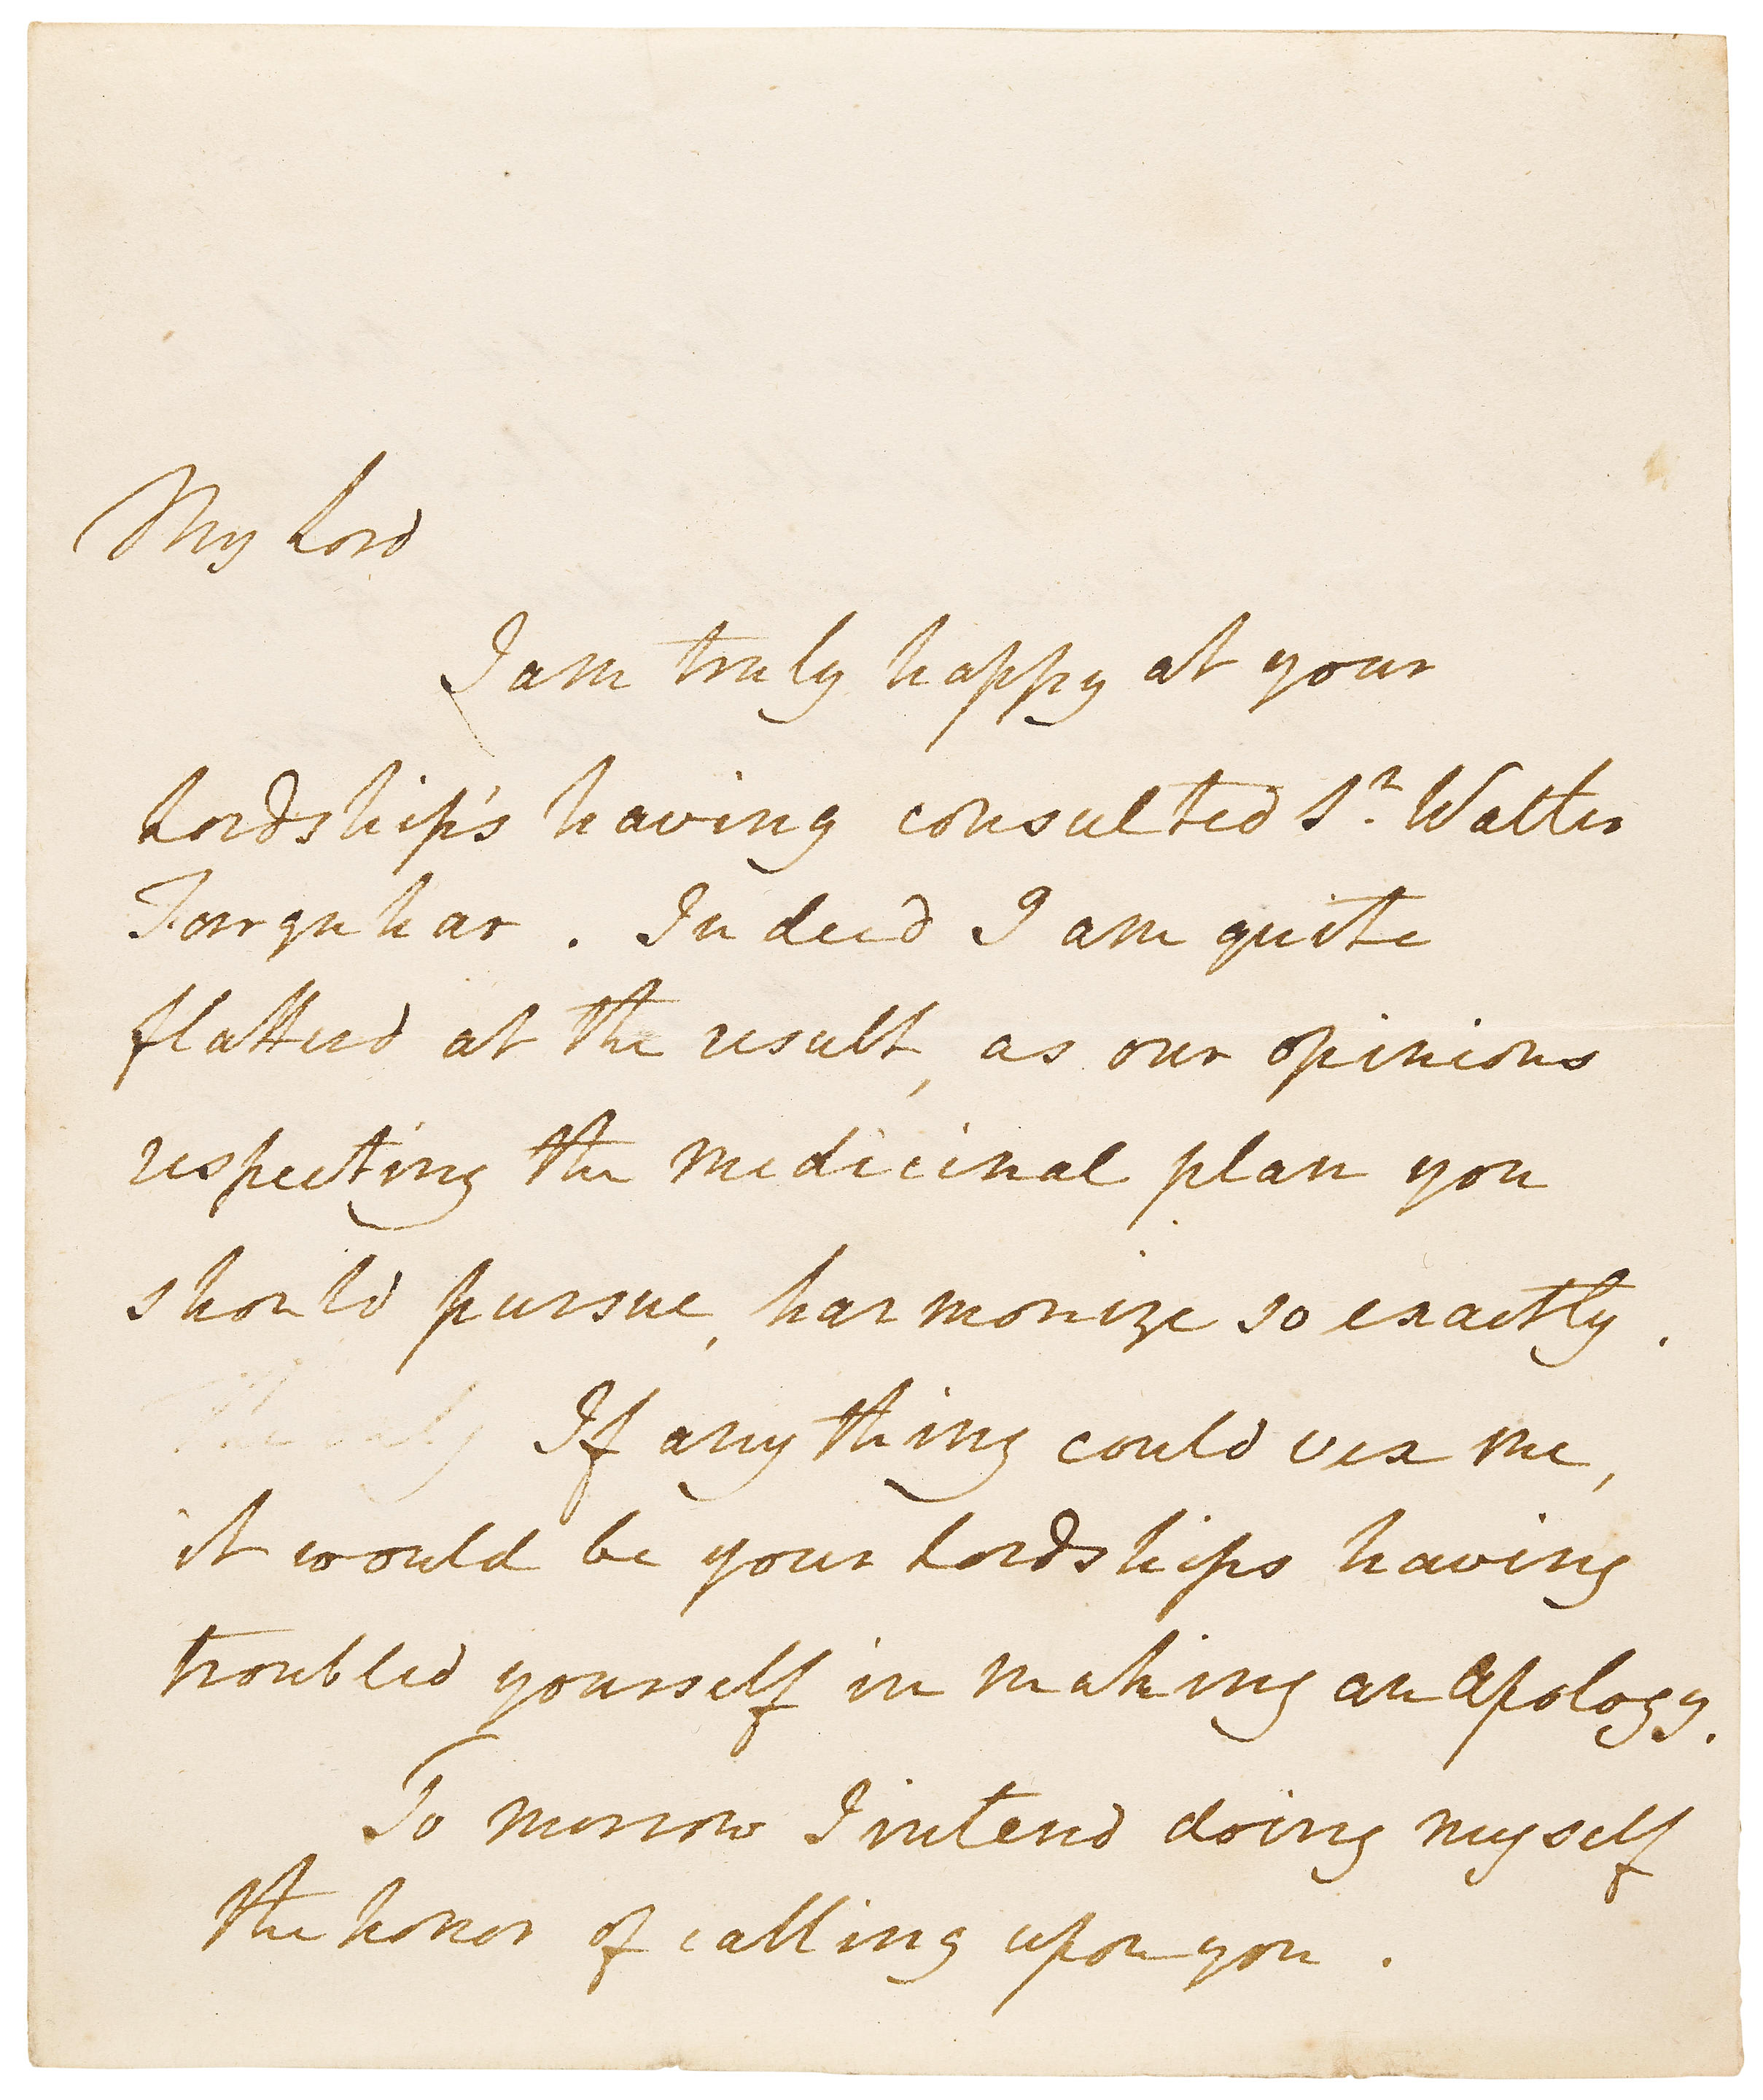 My Lord
I am truly happy at your
Lordship's having consulted Sr. Walter
Farquhar. Indeed I am quite
flatterd at the result, as our opinions
respecting the medicinal plan you
should pursue, harmonize so exactly.
The only If any thing could vex me,
it would be your Lordships having
troubled yourself in making an Apology.
To morrow I intend doing myself
the honor of calling upon you.